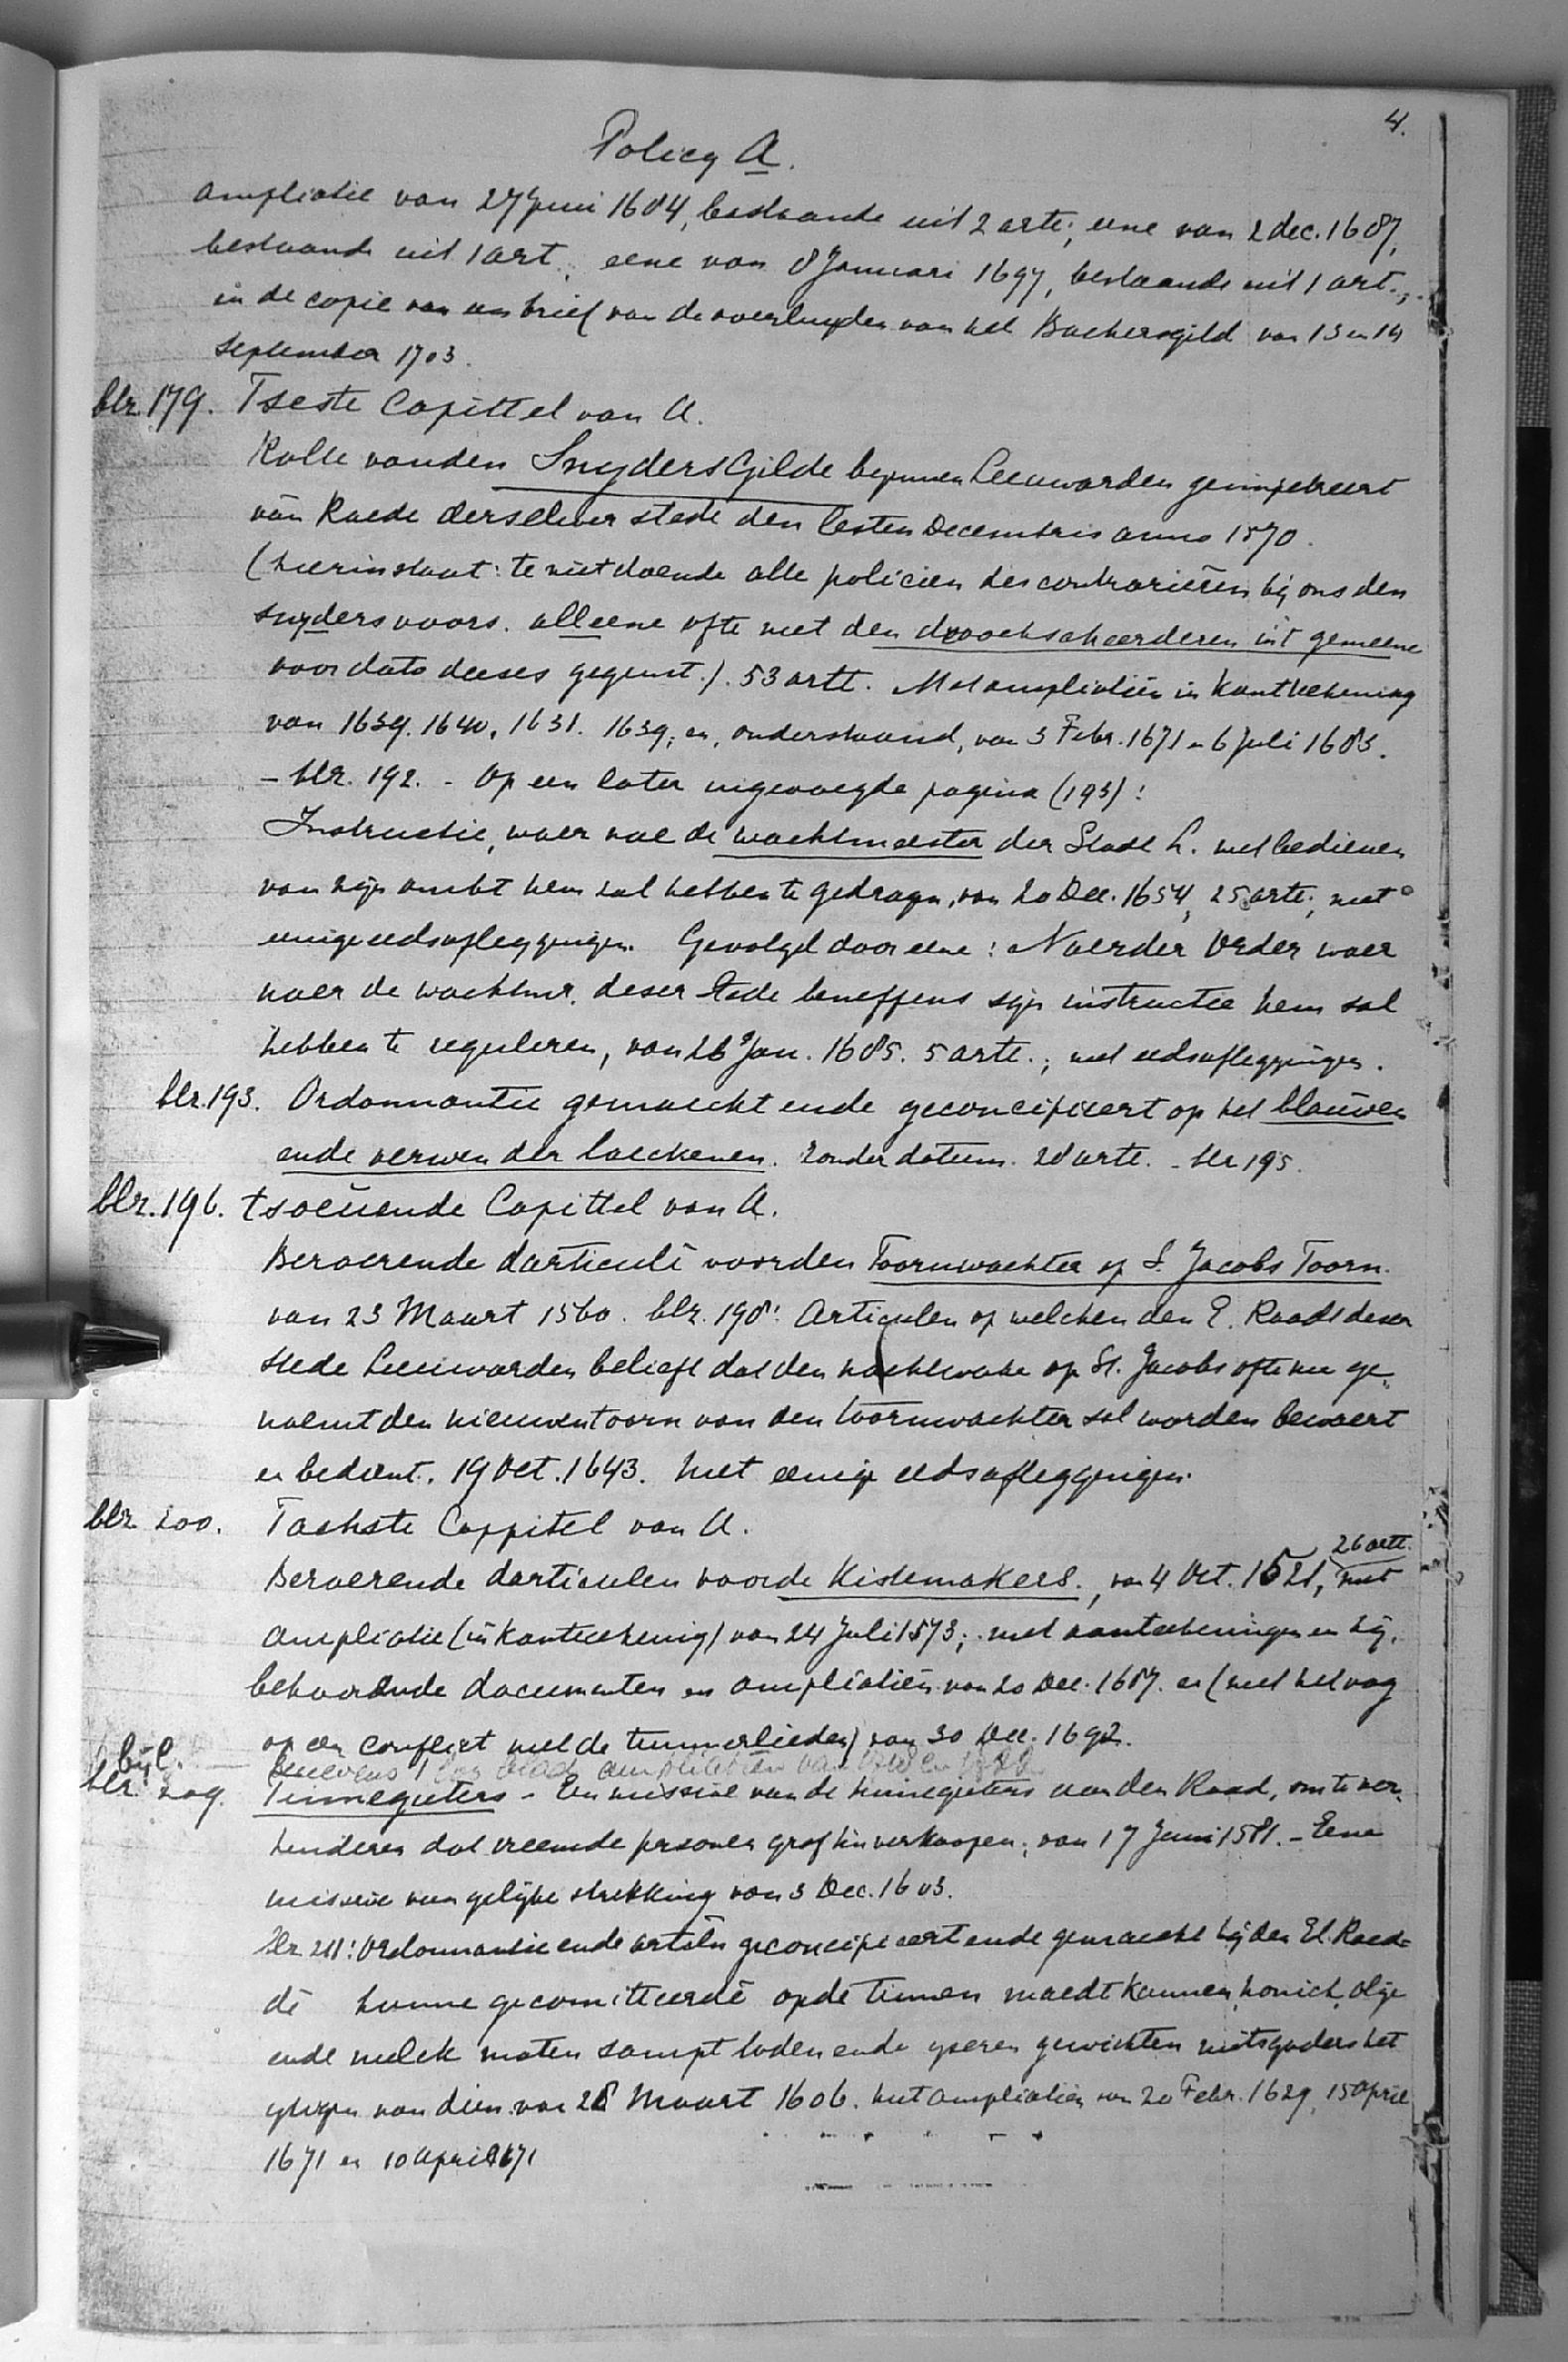 4.
Policy A.
ampliatie van 27 Juni 1684, bestaande uit 2 artt.; eene van 2 dec. 1687,
bestaande uit 1 art.; eene van 8 Januari 1697, bestaande uit 1 art.;
in de copie van een brief van de overluyden van het Backersgild van 13 en 14
September 1703.
blz. 179. Tseste Capittel van A.
Rolle vanden Snyders Gilde bynnen Leeuwarden geimpetreert
van Raede derselver stede den lesten Decembris anno 1570.
(hierin staat: te niet doende alle policien des contrarieren bij ons den
snyders voors. alleene ofte met den droochscheerderen int gemeene
voor dato deeses gegunt.). 53 artt. Met ampliatiën in kantteekening
van 1639. 1640, 1631. 1639; en, onderstaand, van 3 Febr. 1671 en 6 Juli 1683.
- blz. 192. - Op een later ingevoegde pagina (193):
Instructie, waer nae de wachtmeester der Stadt L. met bedienen
van zijn ambt hem sal hebben te gedragen, van 20 Dec. 1654, 25 artt.; met
eenige eedsafleggingen. Gevolgd door eene: Naerder Order waer
naer de wachtmr. deser stede beneffens sijn instructie hem sal
hebben te reguleren, van 26 Jan. 1685. 5 artt.; met eedsafleggingen.
blz. 193. Ordonnantie gemaeckt ende geconcipieert op het blauwen
ende verwen der laeckenen. Zonder datum. 28 artt. - blz 195.
blz. 196. tsoeuende Capittel van A.
Beroerende darticule voorden Toornwachter op S. Jacobs Toorn.
van 23 Maart 1560. blz. 198: Articulen op welcken den E. Raadt deser
stede Leeuwarden belieft dat den nachtwake op St. Jacobs ofte nu ge-
naemt den nieuwen toorn van den toornwachter sal worden bewaert
en bedient. 19 Oct. 1643. Met eenige eedsafleggingen.
blz. 200. Tachste Cappitel van A.
26 artt.
Beroerende darticulen voorde Kistemakers., van 4 Oct. 1521, met
ampliatie (in kantteekening) van 24 Juli 1573; met aanteekeningen en bij-
behoorende documenten en ampliatiën van 20 Dec. 1687. en (met het oog
op een conflict met de timmerlieden) van 30 Dec. 1692.
bijl. benevens 1 los blad ampliatiën van
blz. 209. Tinnegieters - Een missive van de tinnegieters aan den Raad, om te ver-
hinderen dat vreemde personen grof tin verkoopen; van 17 Juni 1581. - Eene
missive van gelijke strekking van 3 Dec. 1603.
blz 211: Ordonnantie ende artcln geconcipieert ende gemaeckt bij den Ed. Raed-
de hunne gecomitteerde op de tinnen maedt kannen, honich, olye
ende melck maten sampt loden ende yseren gewichten mitsgaders het
ycken van dien van 28 Maart 1606. met ampliatiën van 20 Febr. 1629, 15 April
1671 en 10 April 1671